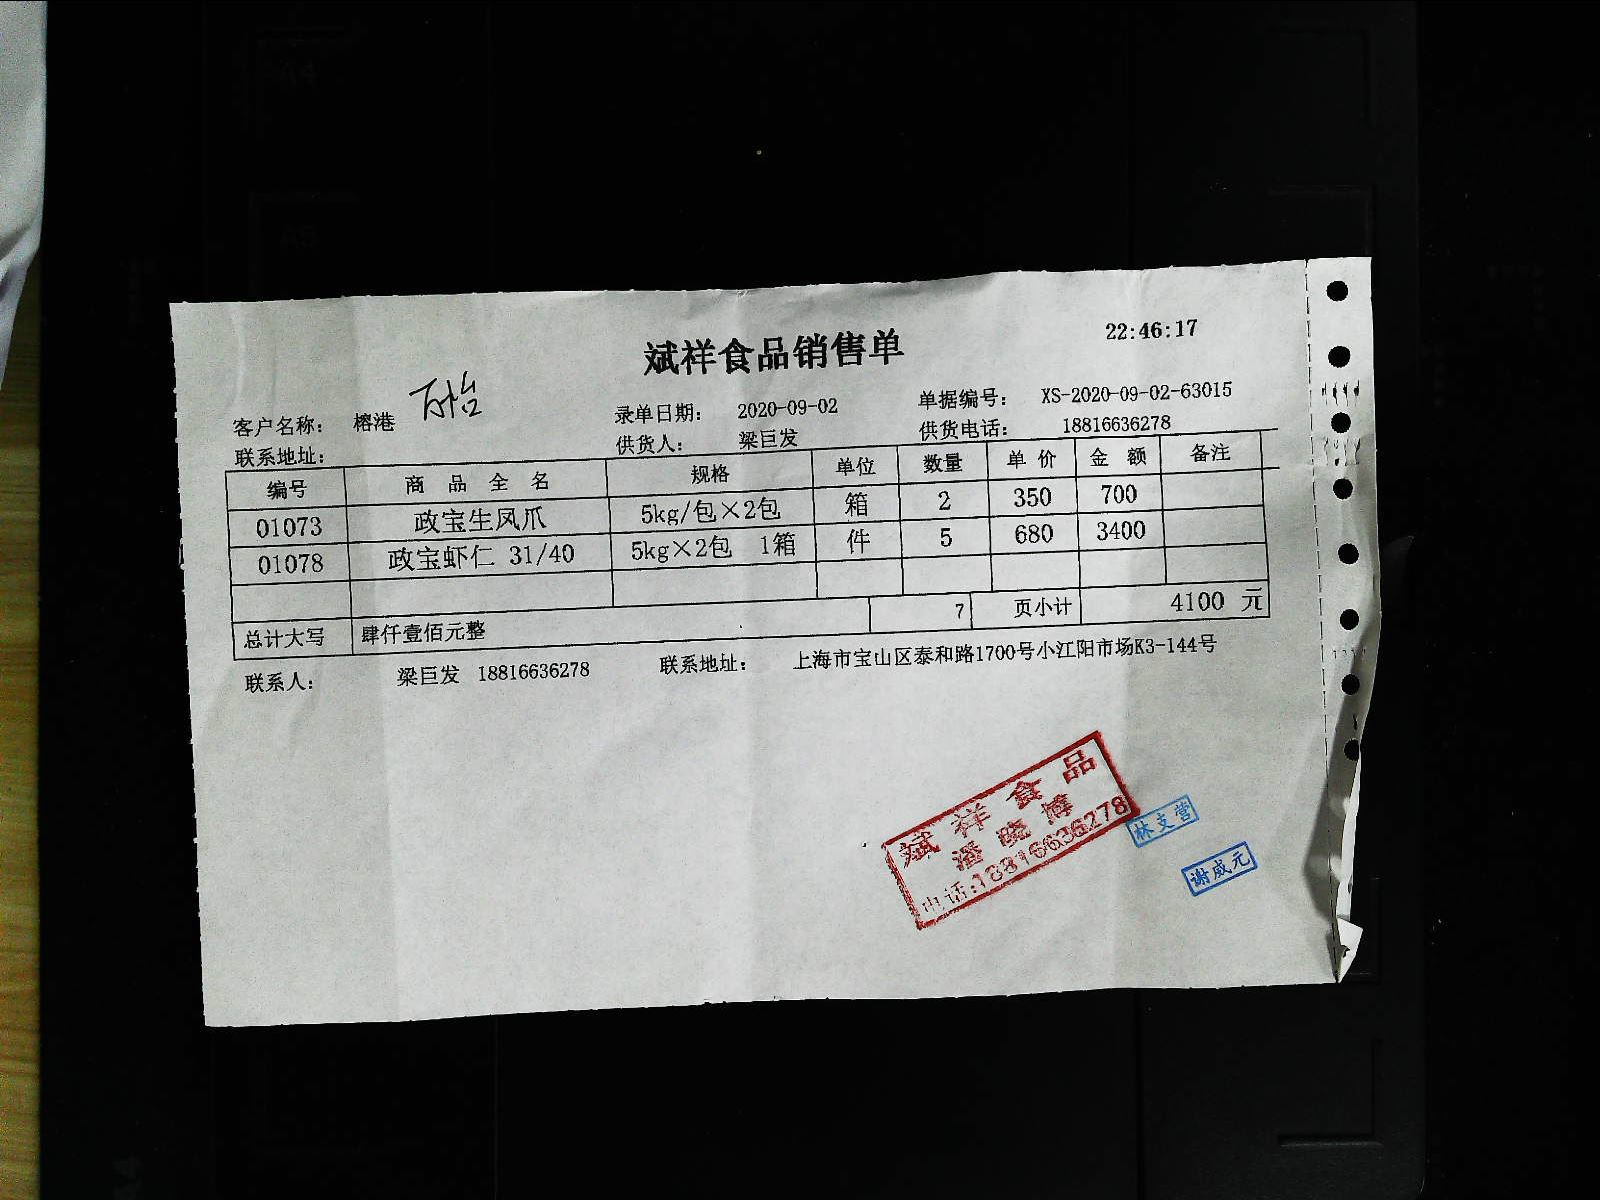 斌祥食品销售单
22:46:17
客户名称： 榕港 万怡 录单日期： 2020-09-02 单据编号： XS-2020-09-02-63015
联系地址： 供货人： 梁巨发 供货电话： 18816636278
编号 商 品 全 名 规格 单位 数量 单 价 金 额 备注
01073 政宝生凤爪 5kg/包×2包 箱 2 350 700
01078 政宝虾仁 31/40 5kg×2包 1箱 件 5 680 3400
总计大写 肆仟壹佰元整 7 页小计 4100 元
联系人： 梁巨发 18816636278 联系地址： 上海市宝山区泰和路1700号小江阳市场K3-144号
斌祥食品
潘晓博
电话:18816636278
林支营
谢威元